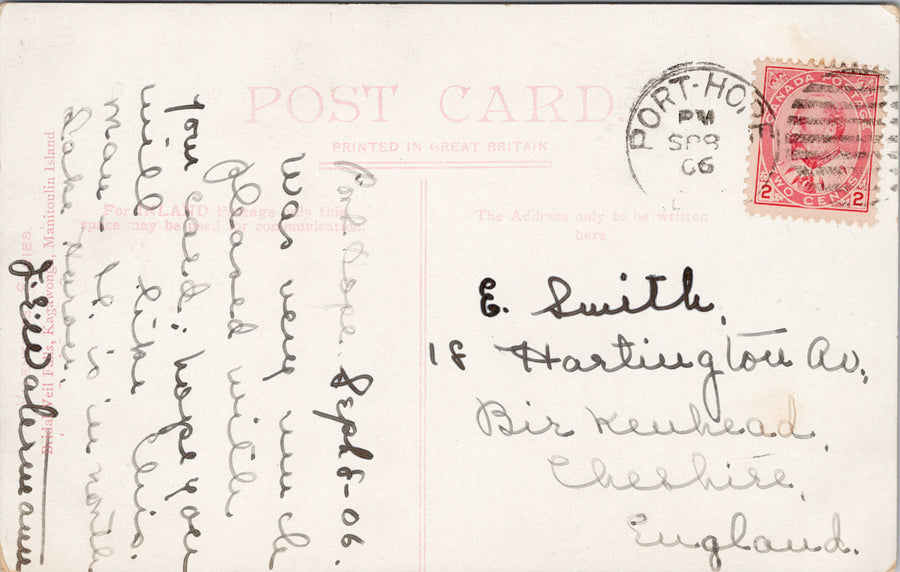 POST CARD.
PRINTED IN GREAT BRITAIN
For INLAND Postage only this
space may be used for communication.
The Address only to be written
here
Bridal Veil Falls, Kagawong, Manitoulin Island
PORT-HOPE
PM
SP 8
06
CANADA POSTAGE
2 TWO CENTS 2
Port Hope. Sept 8-06.
Was very much
pleased with
your card; hope you
will like this.
man. Is. is in north
Lake Huron.
E. Smith,
18 Hartington Av,
Birkenhead,
Cheshire,
England.